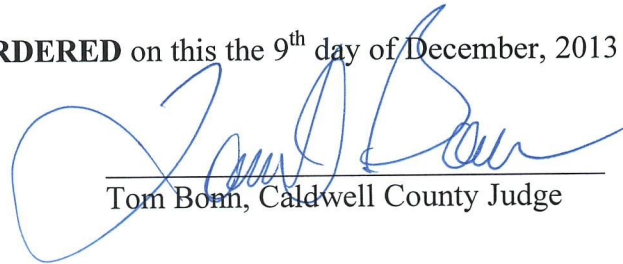 RDERED on this the 9th day of December, 2013
Tom Bonn, Caldwell County Judge